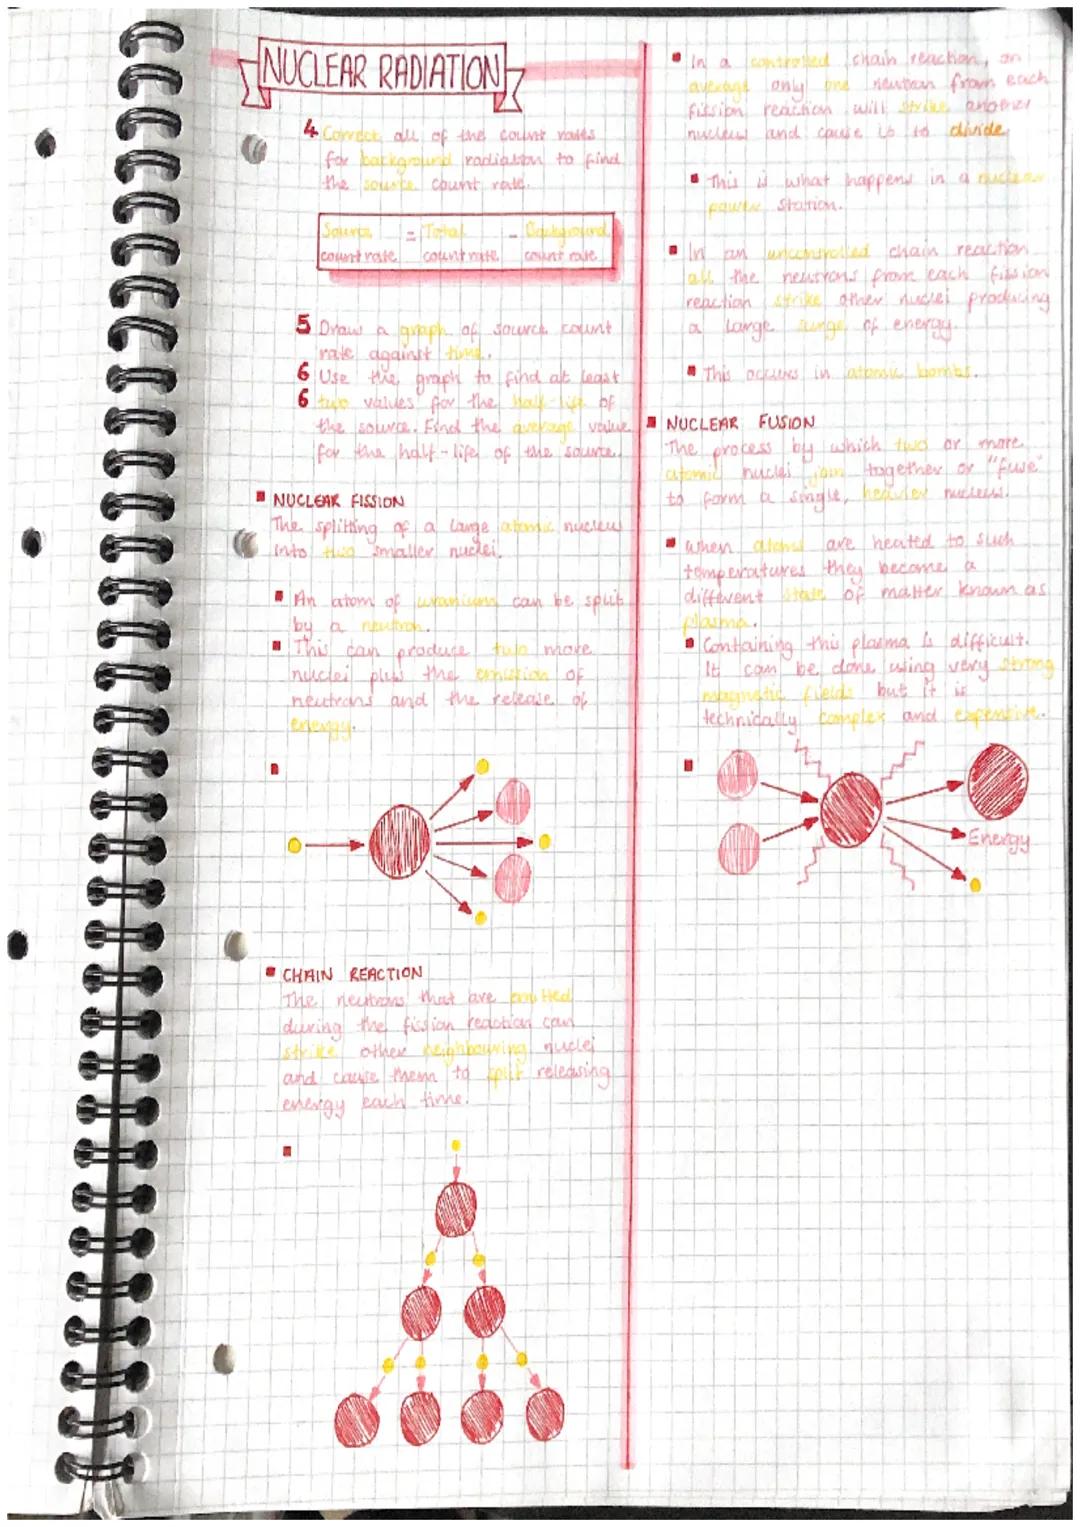 NUCLEAR RADIATION
4 Correct all of the count rates
for background radiation to find
the source count rate.
Source = Total - Background
count rate count rate count rate
5 Draw a graph of source count
rate against time.
6 Use the graph to find at least
6 two values for the half-life of
the source. Find the average value
for the half-life of the source.
NUCLEAR FISSION
The splitting of a large atomic nucleus
into two smaller nuclei.
An atom of uranium can be split
by a neutron.
This can produce two more
nuclei plus the emission of
neutrons and the release of
energy.
CHAIN REACTION
The neutrons that are emitted
during the fission reaction can
strike other neighbouring nuclei
and cause them to split releasing
energy each time.
In a controlled chain reaction, on
average only one neutron from each
fission reaction will strike another
nucleus and cause it to divide
This is what happens in a nuclear
power station.
In an uncontrolled chain reaction
all the neutrons from each fission
reaction strike other nuclei producing
a large surge of energy.
This occurs in atomic bombs.
NUCLEAR FUSION
The process by which two or more
atomic nuclei join together or "fuse"
to form a single, heavier nucleus.
When atoms are heated to such
temperatures they become a
different state of matter known as
plasma.
Containing this plasma is difficult.
It can be done using very strong
magnetic fields but it is
technically complex and expensive.
Energy